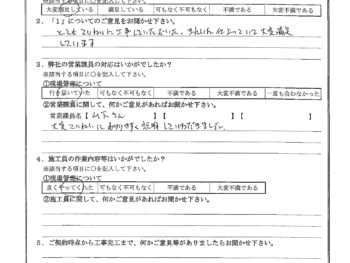 大変満足している 満足している 可もなく不可もなく 不満である 大変不満である
2．「1」についてのご意見をお聞かせ下さい。
とてもていねいに工事していただいた。きれいに仕上っていて大変満足
しています
3．弊社の営業課員の対応はいかがでしたか？
※該当する項目に○を記入して下さい。
①現場管理について
行き届いていた 可もなく不可もなく 不満である 大変不満である 一度も会わなかった
②営業課員に関して、何かご意見があればお聞かせ下さい。
営業課員名【 山下さん 】【 】【
大変ていねいにわかりやすく説明していただきました。
4．施工員の作業内容等はいかがでしたか？
※該当する項目に○を記入して下さい。
①現場管理について
良くやってくれた 可もなく不可もなく 不満である 大変不満である
②施工員に関して、何かご意見があればお聞かせ下さい。
5．ご契約時点から工事完工まで、何かご意見等がありましたらお聞かせ下さい。